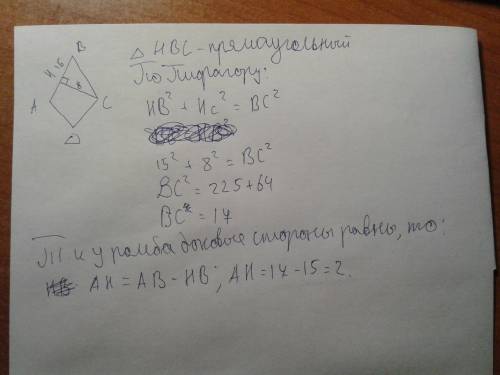 B
H 15
8
A
C
△ HBC - прямоугольный
По Пифагору:
HB² + HC² = BC²
15² + 8² = BC²
BC² = 225 + 64
BC = 17
Т.к у ромба боковые стороны равны, то:
AH = AB - HB; AH = 17 - 15 = 2.